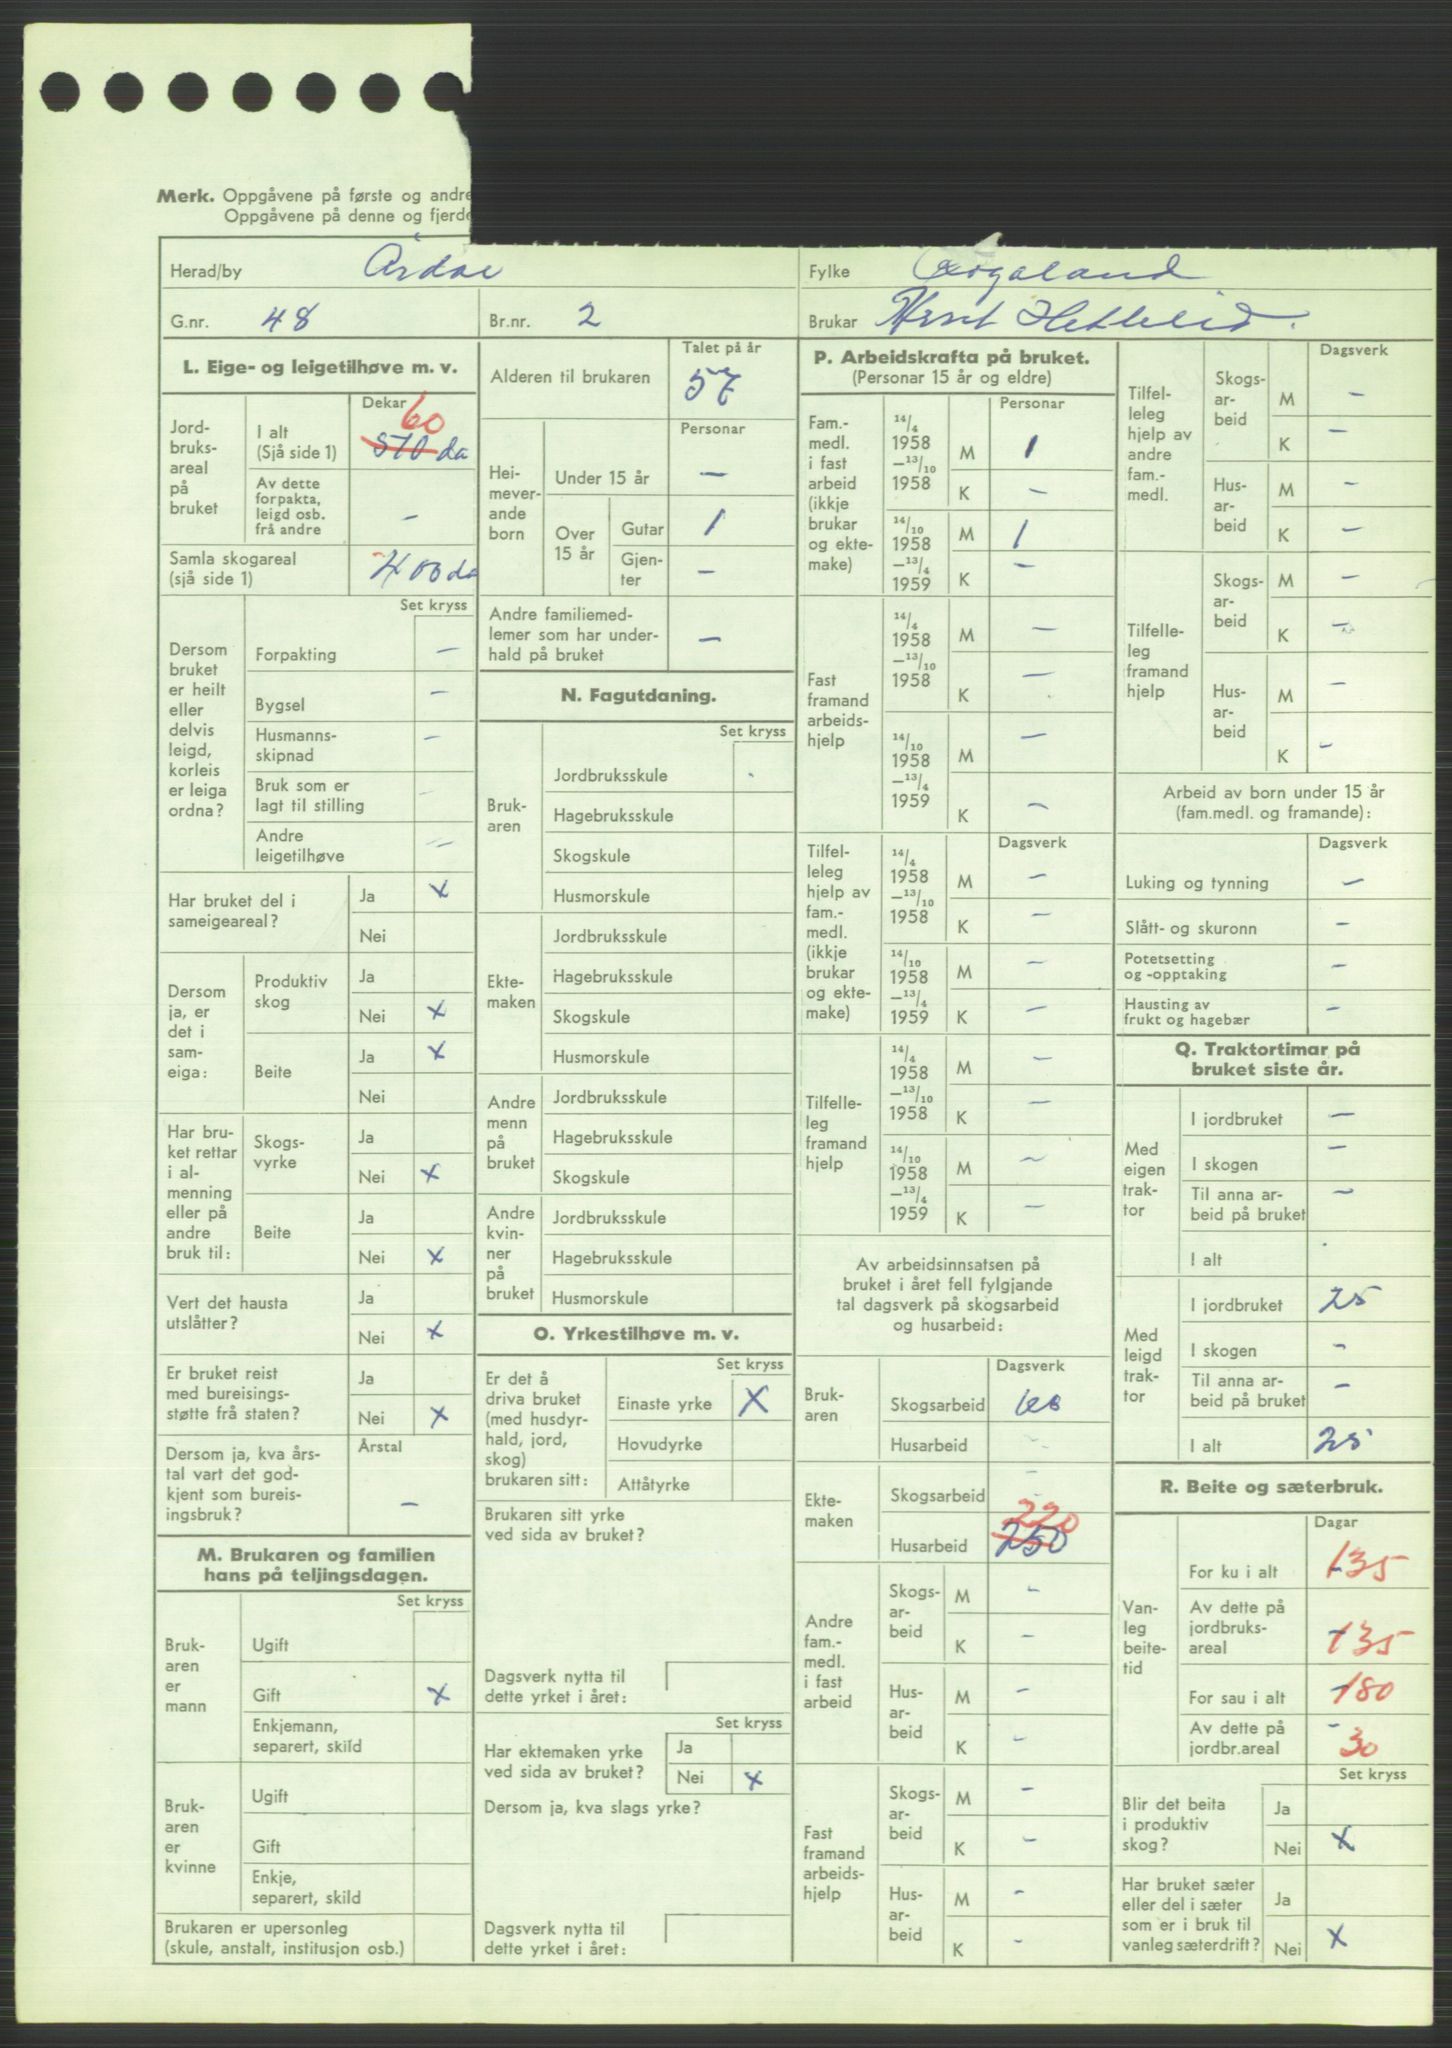 Merk. Oppgåvene på første og andre
Oppgåvene på denne og fjerde
Herad/by Årdal
Fylke Rogaland
G.nr. 48
Br.nr. 2
Brukar
L. Eige- og leigetilhøve m. v.
Dekar
Jord-
bruks-
areal
på
bruket
I alt
(Sjå side 1)
60
570 da
Av dette
forpakta,
leigd osb.
frå andre
–
Samla skogareal
(sjå side 1)
400 da
Set kryss
Dersom
bruket
er heilt
eller
delvis
leigd,
korleis
er leiga
ordna?
Forpakting –
Bygsel –
Husmanns-
skipnad –
Bruk som er
lagt til stilling –
Andre
leigetilhøve –
Har bruket del i
sameigeareal?
Ja x
Nei
Dersom
ja, er
det i
sam-
eiga:
Produktiv
skog
Ja
Nei x
Beite
Ja x
Nei
Har bru-
ket rettar
i al-
menning
eller på
andre
bruk til:
Skogs-
vyrke
Ja
Nei x
Beite
Ja
Nei x
Vert det hausta
utslåtter?
Ja
Nei x
Er bruket reist
med bureisings-
støtte frå staten?
Ja
Nei x
Dersom ja, kva års-
tal vart det god-
kjent som bureis-
ingsbruk?
Årstal
–
M. Brukaren og familien
hans på teljingsdagen.
Set kryss
Bruk-
aren
er
mann
Ugift
Gift x
Enkjemann,
separert, skild
Bruk-
aren
er
kvinne
Ugift
Gift
Enkje,
separert, skild
Brukaren er upersonleg
(skule, anstalt, institusjon osb.)
Talet på år
Alderen til brukaren 57
Personar
Hei-
mever-
ande
born
Under 15 år –
Over
15 år
Gutar 1
Gjen-
ter –
Andre familiemed-
lemer som har under-
hald på bruket –
N. Fagutdaning.
Set kryss
Bruk-
aren
Jordbruksskule
Hagebruksskule
Skogskule
Husmorskule
Ekte-
maken
Jordbruksskule
Hagebruksskule
Skogskule
Husmorskule
Andre
menn
på
bruket
Jordbruksskule
Hagebruksskule
Skogskule
Andre
kvin-
ner
på
bruket
Jordbruksskule
Hagebruksskule
Husmorskule
O. Yrkestilhøve m. v.
Set kryss
Er det å
driva bruket
(med husdyr-
hald, jord,
skog)
brukaren sitt:
Einaste yrke X
Hovudyrke
Attåtyrke
Brukaren sitt yrke
ved sida av bruket?
Dagsverk nytta til
dette yrket i året:
Set kryss
Har ektemaken yrke
ved sida av bruket?
Ja
Nei x
Dersom ja, kva slags yrke?
Dagsverk nytta til
dette yrket i året:
P. Arbeidskrafta på bruket.
(Personar 15 år og eldre)
Personar
Fam.-
medl.
i fast
arbeid
(ikkje
brukar
og ekte-
make)
14/4
1958
—13/10
1958
M 1
K –
14/10
1958
—13/4
1959
M 1
K –
Fast
framand
arbeids-
hjelp
14/4
1958
—13/10
1958
M –
K –
14/10
1958
—13/4
1959
M –
K –
Dagsverk
Tilfel-
leleg
hjelp av
fam.-
medl.
(ikkje
brukar
og ekte-
make)
14/4
1958
—13/10
1958
M –
K –
14/10
1958
—13/4
1959
M –
K –
Tilfelle-
leg
framand
hjelp
14/4
1958
—13/10
1958
M –
K –
14/10
1958
—13/4
1959
M –
K –
Av arbeidsinnsatsen på
bruket i året fell fylgjande
tal dagsverk på skogsarbeid
og husarbeid:
Dagsverk
Bruk-
aren
Skogsarbeid
Husarbeid –
Ekte-
maken
Skogsarbeid –
220
Husarbeid 250
Andre
fam.-
medl.
i fast
arbeid
Skogs-
ar-
beid
M –
K –
Hus-
ar-
beid
M –
K –
Fast
framand
arbeids-
hjelp
Skogs-
ar-
beid
M –
K –
Hus-
ar-
beid
M –
K –
Dagsverk
Tilfel-
leleg
hjelp av
andre
fam.-
medl.
Skogs-
ar-
beid
M –
K –
Hus-
ar-
beid
M –
K –
Tilfelle-
leg
framand
hjelp
Skogs-
ar-
beid
M –
K –
Hus-
ar-
beid
M –
K –
Arbeid av born under 15 år
(fam.medl. og framande):
Dagsverk
Luking og tynning –
Slått- og skuronn –
Potetsetting
og -opptaking –
Hausting av
frukt og hagebær –
Q. Traktortimar på
bruket siste år.
Med
eigen
trak-
tor
I jordbruket –
I skogen –
Til anna ar-
beid på bruket –
I alt
Med
leigd
trak-
tor
I jordbruket 25
I skogen –
Til anna ar-
beid på bruket –
I alt 25
R. Beite og sæterbruk.
Dagar
Van-
leg
beite-
tid
For ku i alt 135
Av dette på
jordbruks-
areal 135
For sau i alt 180
Av dette på
jordbr.areal 30
Set kryss
Blir det beita
i produktiv
skog?
Ja
Nei x
Har bruket sæter
eller del i sæter
som er i bruk til
vanleg sæterdrift?
Ja
Nei x